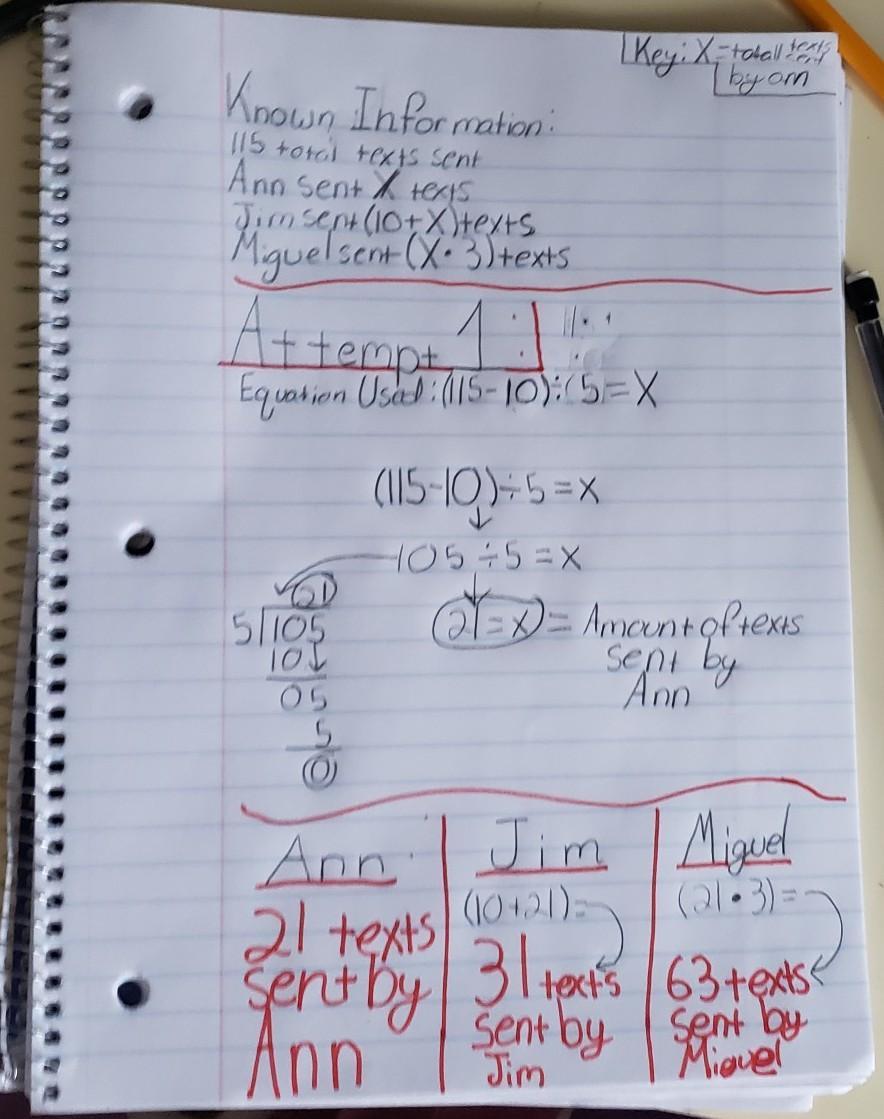 Key: X=totall texts sent
by om
Known Information:
115 total texts sent
Ann sent X texts
Jim sent (10+X) texts
Miguel sent (X·3) texts
Attempt 1:
Equation Used: (115-10)÷(5)=X
(115-10)÷5=X
↓
105÷5=X
21
5 105
10↓
05
5
0
↓
21=X = Amount of texts
sent by
Ann
Ann
21 texts
sent by
Ann
Jim
(10+21)=
31 texts
sent by
Jim
Miguel
(21·3)=
63 texts
sent by
Miguel